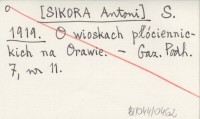 [SIKORA Antoni] S.
1919. O wioskach płóciennic-
kich na Orawie. – Gaz. Podh.
7, nr 11.